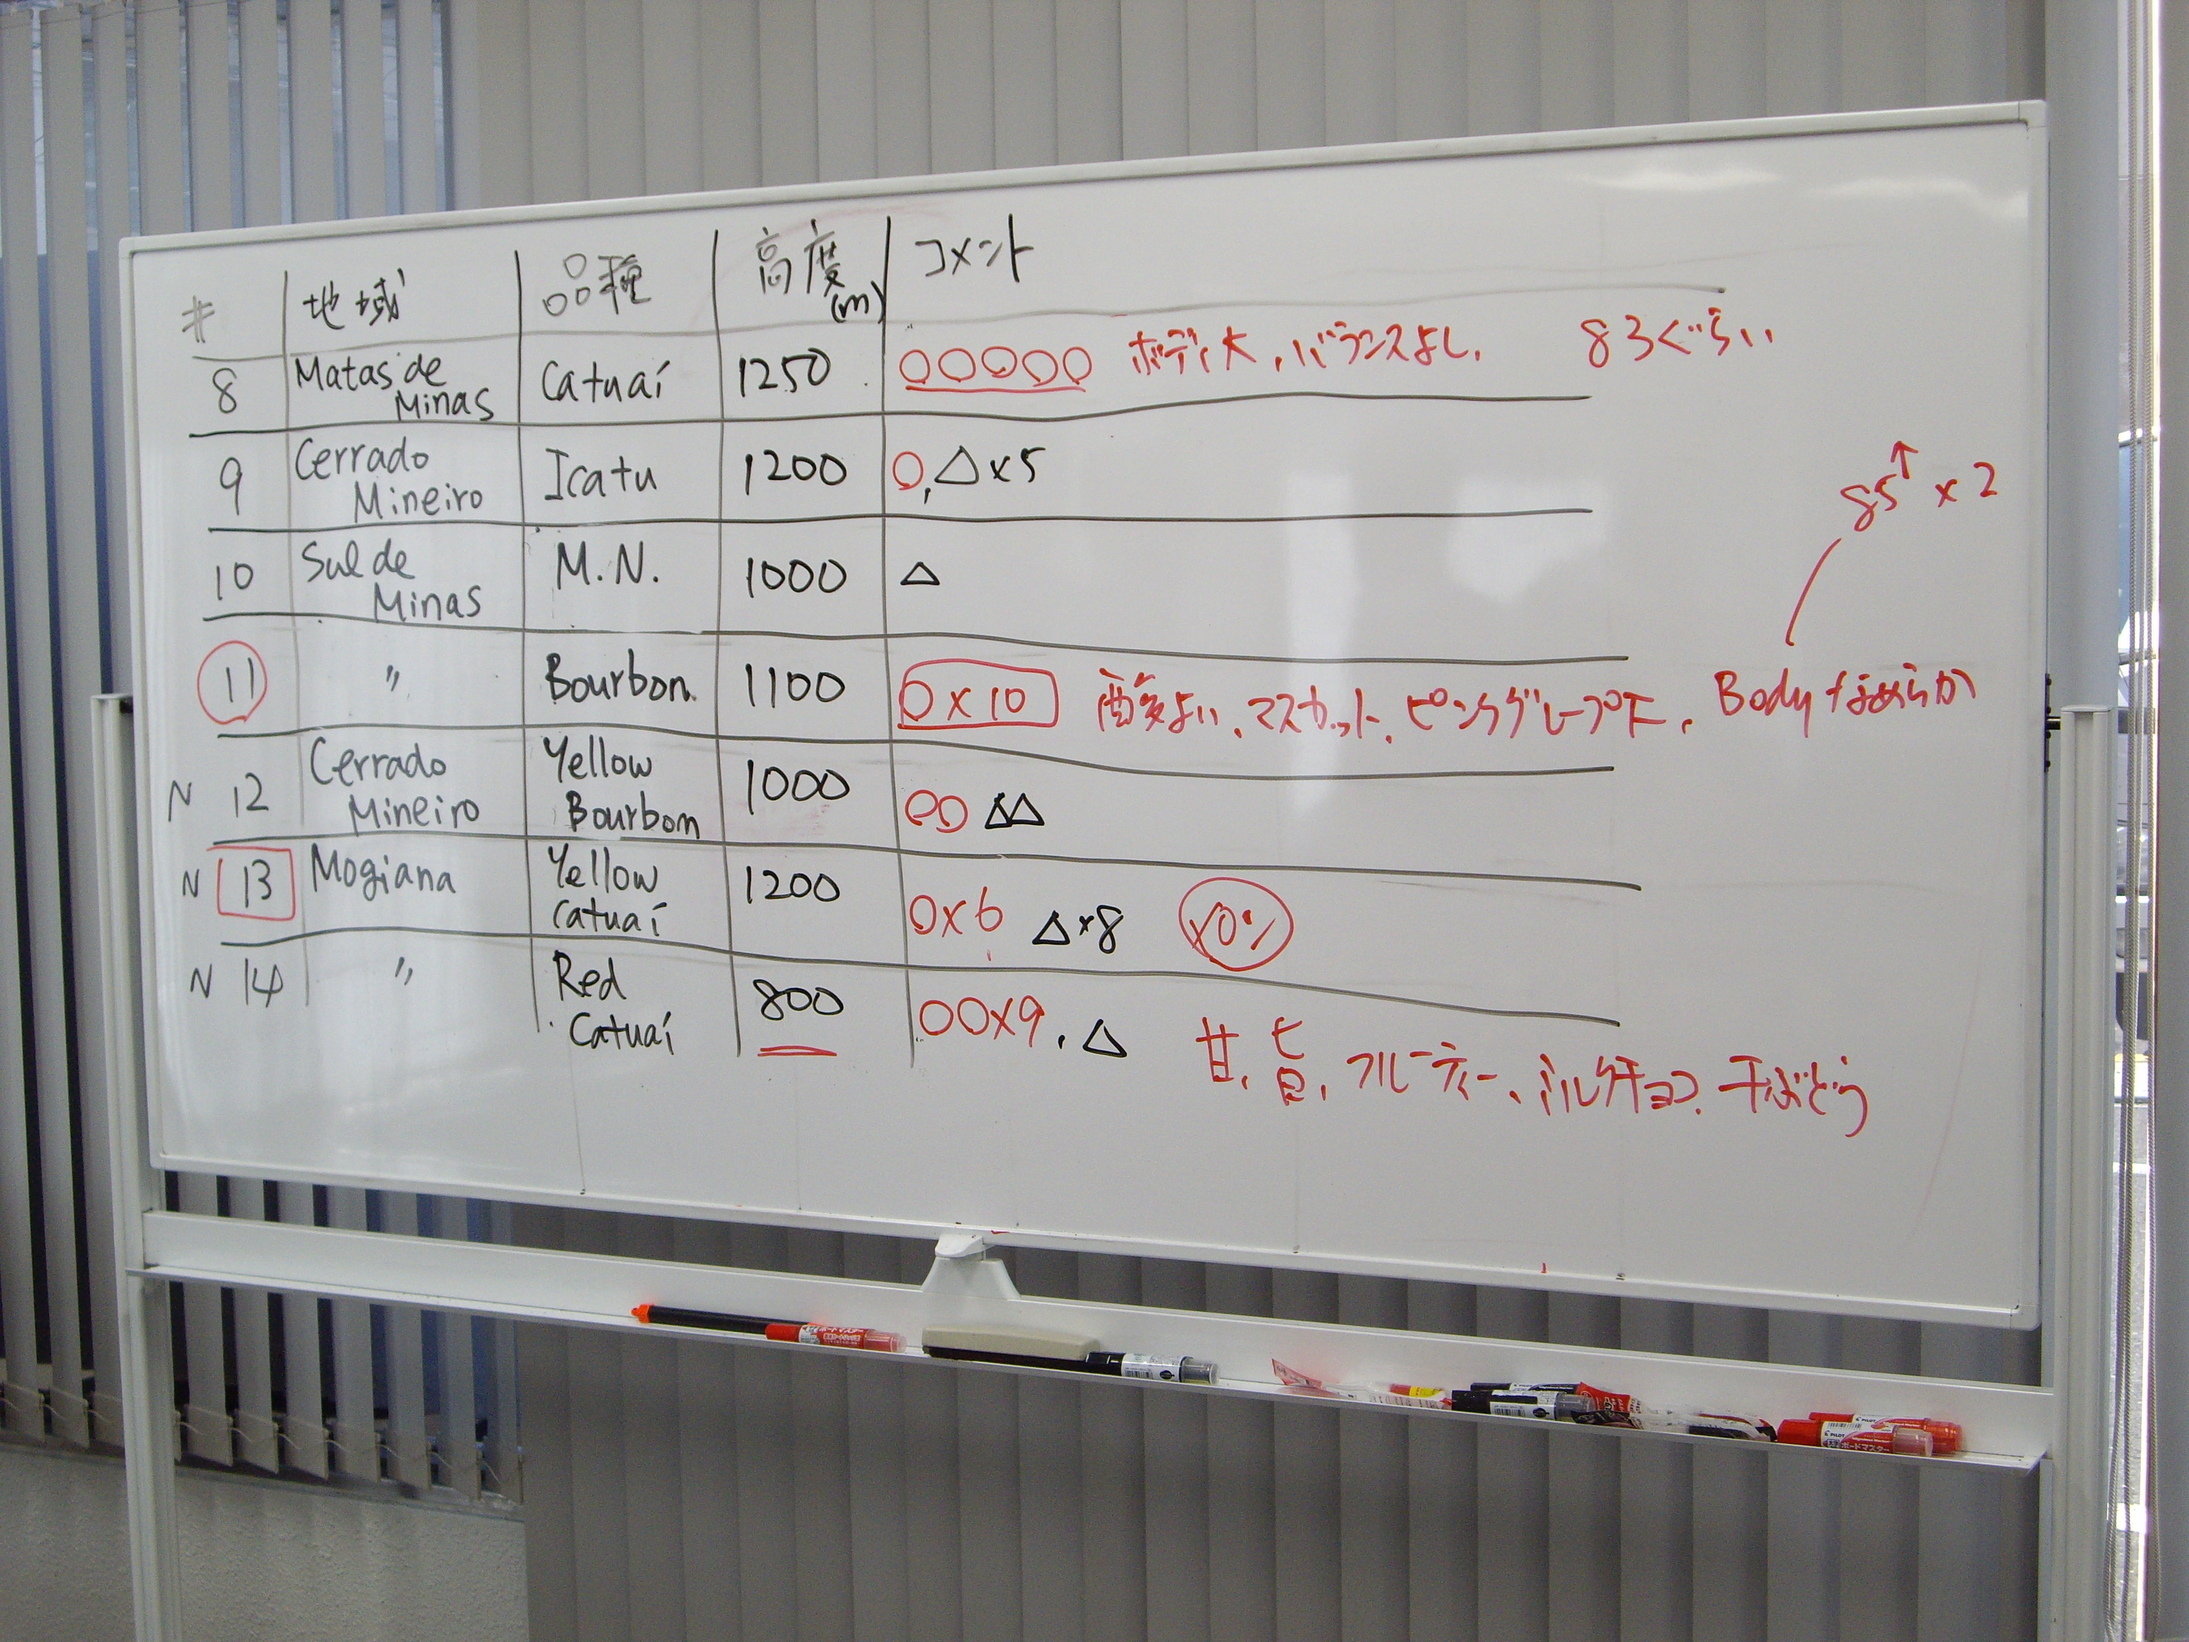 # 地域 品種 高度(m) コメント
8 Matas de Minas Catuaí 1250 ○○○○○ ボディ大、バランスよし、 83ぐらい
9 Cerrado Mineiro Icatu 1200 ○, △×5
85↑ ×2
10 Sul de Minas M.N. 1000 △
11 〃 Bourbon 1100 ○×10 酸実よい、マスカット、ピンクグレープF、Bodyなめらか
N 12 Cerrado Mineiro Yellow Bourbon 1000 ○○ △△
N 13 Mogiana Yellow Catuaí 1200 ○×6 △×8
N 14 〃 Red Catuaí 800 ○○×9, △ 甘、旨、フルーティー、ミルクチョコ、干ぶどう
ボードマスター
PILOT
ボードマスター